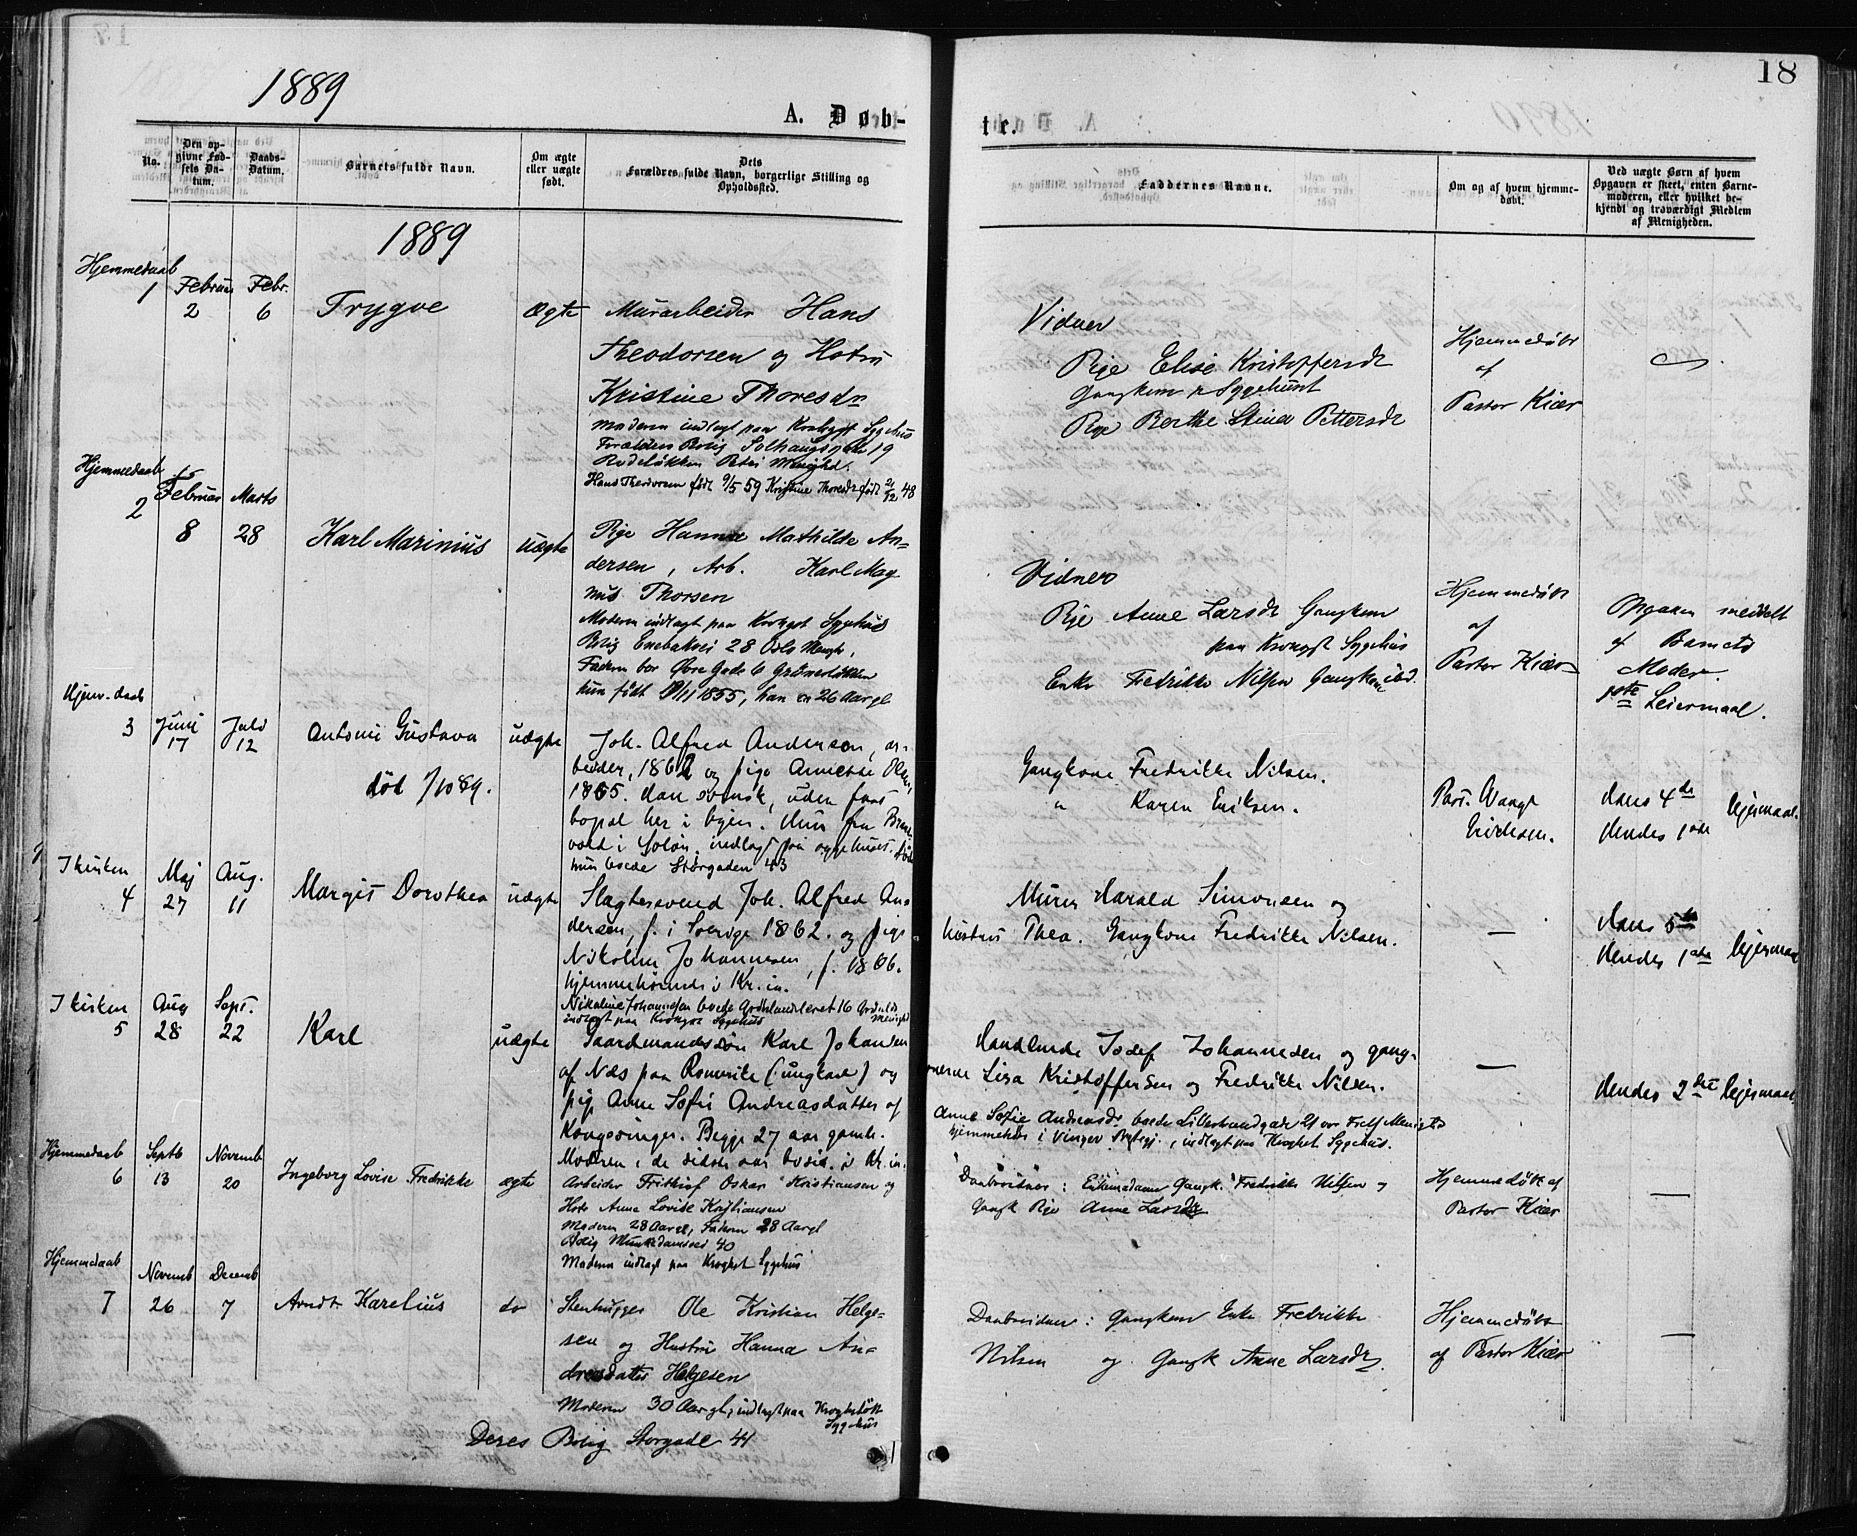 1889
18
A. Døb-
te.
No.
Den op-
givne Fød-
sels Da-
tum.
Daabs-
Datum.
Barnets fulde Navn.
Om ægte
eller uægte
født.
Dets
Forældres fulde Navn, borgerlige Stilling og
Opholdssted.
Faddernes Navne.
Om og af hvem hjemme-
døbt.
Ved uægte Børn af hvem
Opgaven er skeet, enten Barne-
moderen, eller hvilket be-
kjendt og troværdigt Medlem
af Menigheden.
1889
Hjemmedaab
1
Februar
2
Febr.
6
Trygve
Ægte
Murarbeider Hans
Theodorsen og Hstru
Kristine Thoresdr
Moderen indlagt paa Krohgst Sygehus
Forældrens Bolig Solhaugsgade 19
Rodeløkken Petri Menighed.
Hans Theodorsen født 9/5 59 Kristine Thoresdr født 2/12 48
Vidner
Pige Elise Kristoffersdr
Gangkone v Sygehuset
Pige Berthe Stina Pettersdr
Hjemmedøbt
af
Pastor Kiær
Hjemmedaab
2
Februar
8
Marts
28
Karl Marinius
uægte
Pige Hanna Mathilde An-
dersen, Arb. Karl Mag
nus Thorsen
Moderen indlagt paa Krohgst Sygehus
Bolig Enebakvei 28 Oslo Mengh.
Faderen bor Øvre Gade 6 Grünerløkken
hun født 9/11 1855, han er 26 Aar gl
Vidner
Pige Anne Larsdr Gangkone
paa Krohgst Sygehus
Enke Fredrikke Nilsen Gangkone ibd.
Hjemmedøbt
af
Pastor Kiær
Opgaven meddelt
af Barnets
Moder.
1ste Leiermaal.
Hjem.daab
3
Juni
17
Juli
12
Antonie Gustava
død 1/10 89.
uægte
Joh. Alfred Anderson, ar-
beider, 1862 og pige Annette Olsen,
1865. Han svensk, uden fast
bopæl her i byen. Hun fra Brand
vold i Solør, indlagt paa sygehuset.
hun boede Storgaden 43
Gangkone Fredrikke Nilsen.
" Karen Eriksen.
Past. Wangs
Hans 4de
Hendes 1ste lejermaal.
I kirken
4
Maj
27
Aug.
11
Margit Dorothea
uægte
Slagtersvend Joh. Alfred An-
dersen, f. i Sverige 1862. og pige
Nikoline Johannesen, f. 1866.
hjemmehørende i Kr.in.
Nikoline Johannesen boede Grønlandsleret 16 Grønlds
Menighed
indlagt paa Krohgst Sygehus
Murer Harald Simonsen og
hustru Thea. Gangkone Fredrikke Nilsen.
—
Hans 5te
Hendes 1ste lejermaal
I kirken
5
Aug
28
Sept.
22
Karl
uægte
Gaardmandssøn Karl Johansen
af Næs paa Romerike (ungkarl) og
pige Anne Sofie Andreasdatter af
Kongsvinger. Begge 27 aar gamle.
Moderen i de sidste aar bosid. i Kr.in.
Handlende Josef Johannesen og gang-
konerne Lisa Kristoffersen og Fredrikke Nilsen.
Anne Sofie Andreasdr boede Lillestrandgade 21 vor Frels Menighed
hjemmehør i Vinger Prgj., indlagt paa Krohgst Sygehus.
—
Hendes 2det lejermaal
Hjemmedaab
6
Septb
13
Novemb
20
Ingeborg Lovise Fredrikke
ægte
Arbeider Frithiof Oskar Kristiansen og
Hstr Anna Lovise Kristiansen
Moderen 28 Aar gl, Faderen 28 Aar gl
Bolig Munkedamsvei 40
Moderen indlagt paa Kroghst Sygehus
Daabsvidner: Enkemadam Gangk. Fredrikke Nilsen og
Gangk Pige Anne Larsdr
Hjemmedøbt af
Pastor Kiær
—
Hjemmedaab
7
Novemb
26
Decemb
7
Arndt Karelius
do
Stenhugger Ole Kristian Helge-
sen og Hustru Hanna An-
dreasdatter Helgesen
Moderen 30 Aar gl, indlagt paa Kroghstøtt
Sygehus
Deres Bolig Storgade 44
Daabsvidner: Gangkone Enke Fredrikke
Nilsen og Gangk Anne Larsdr
Hjemmedøbt
af Pastor Kiær
—